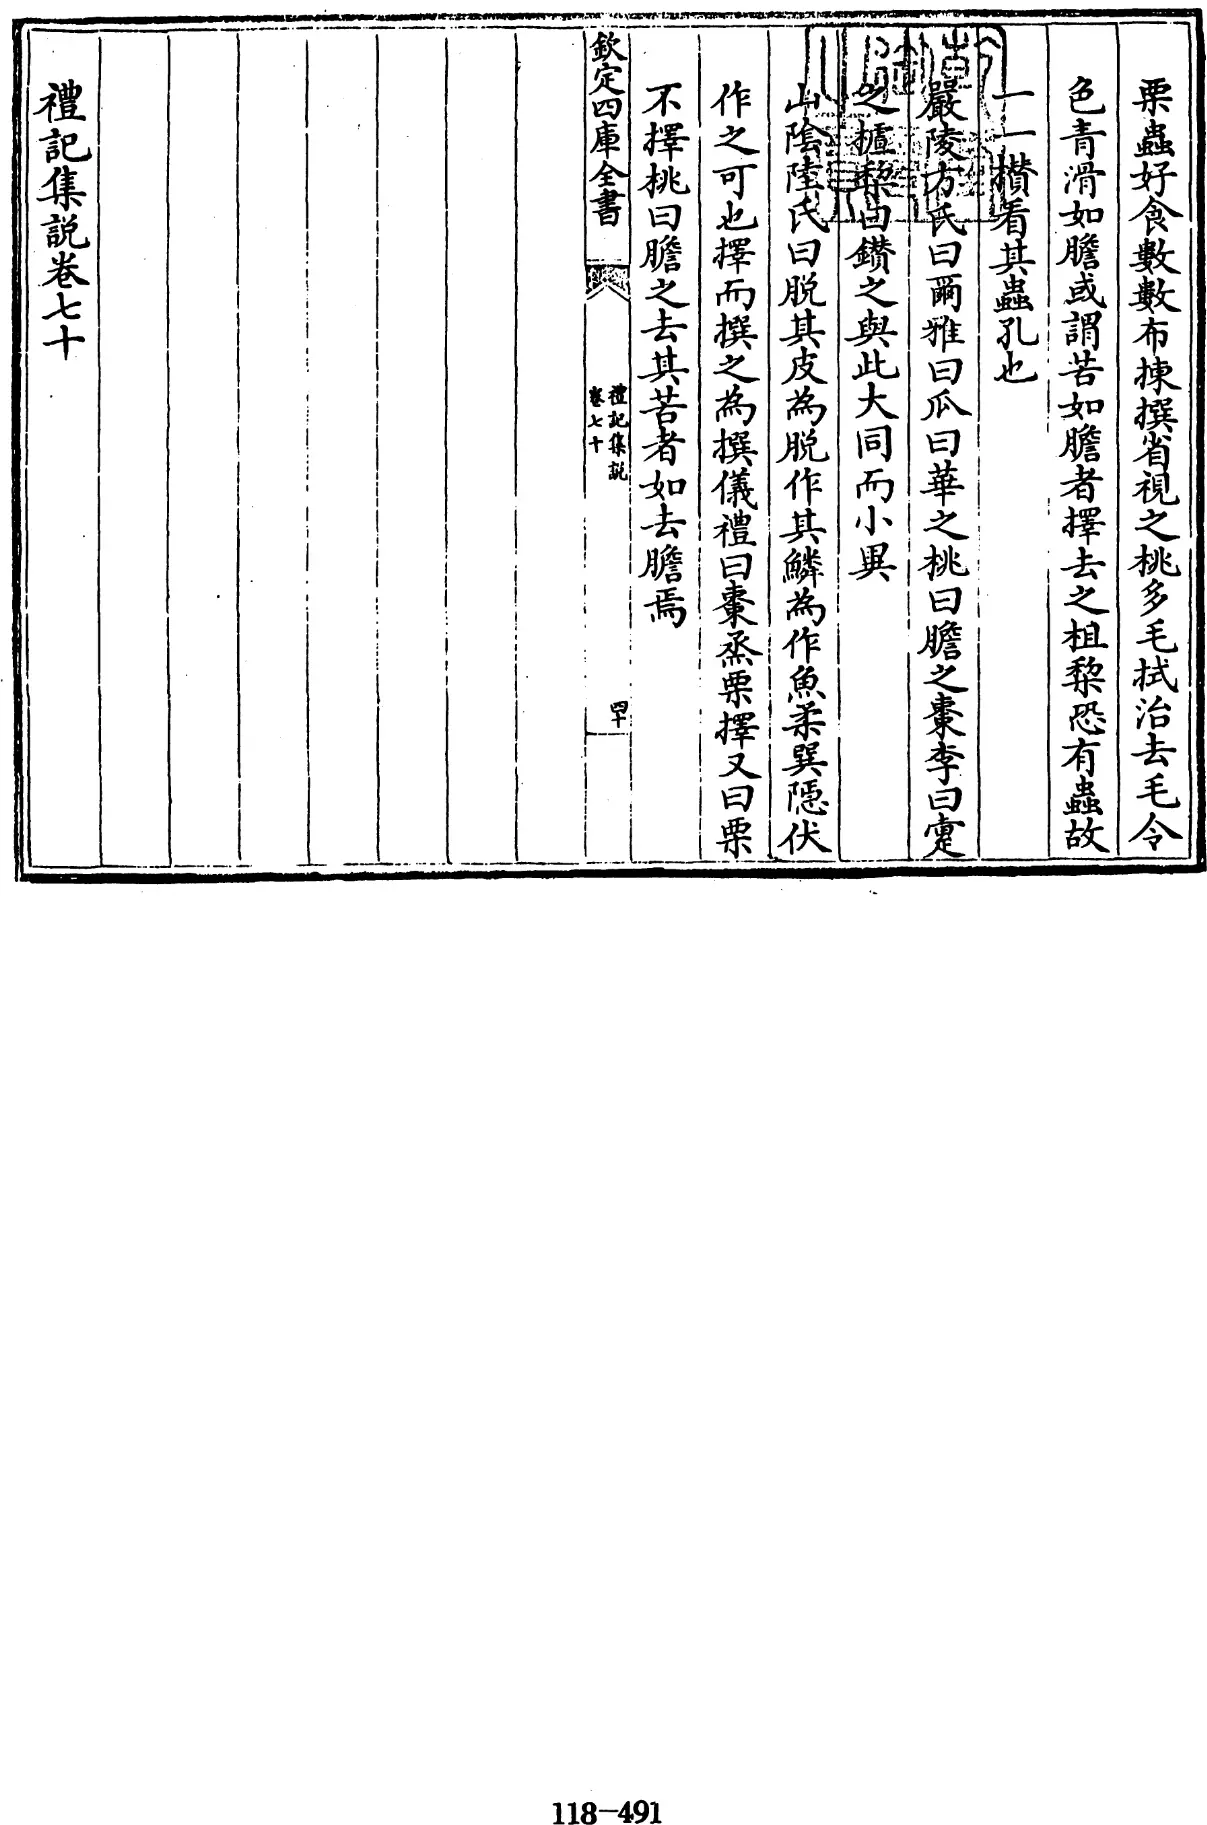 栗蟲好食數數布揀撰省視之桃多毛拭治去毛令
色青滑如膽或謂苦如膽者擇去之柤棃恐有蟲故
一一攢看其蟲孔也
嚴陵方氏曰爾雅曰瓜曰華之桃曰膽之棗李曰疐
之樝棃曰鑚之與此大同而小異
山陰陸氏曰脱其皮為脱作其鱗為作魚柔巽隱伏
作之可也擇而撰之為撰儀禮曰棗烝栗擇又曰栗
不擇桃曰膽之去其苦者如去膽焉
欽定四庫全書
禮記集説
卷七十
罕
禮記集説卷七十
118-491